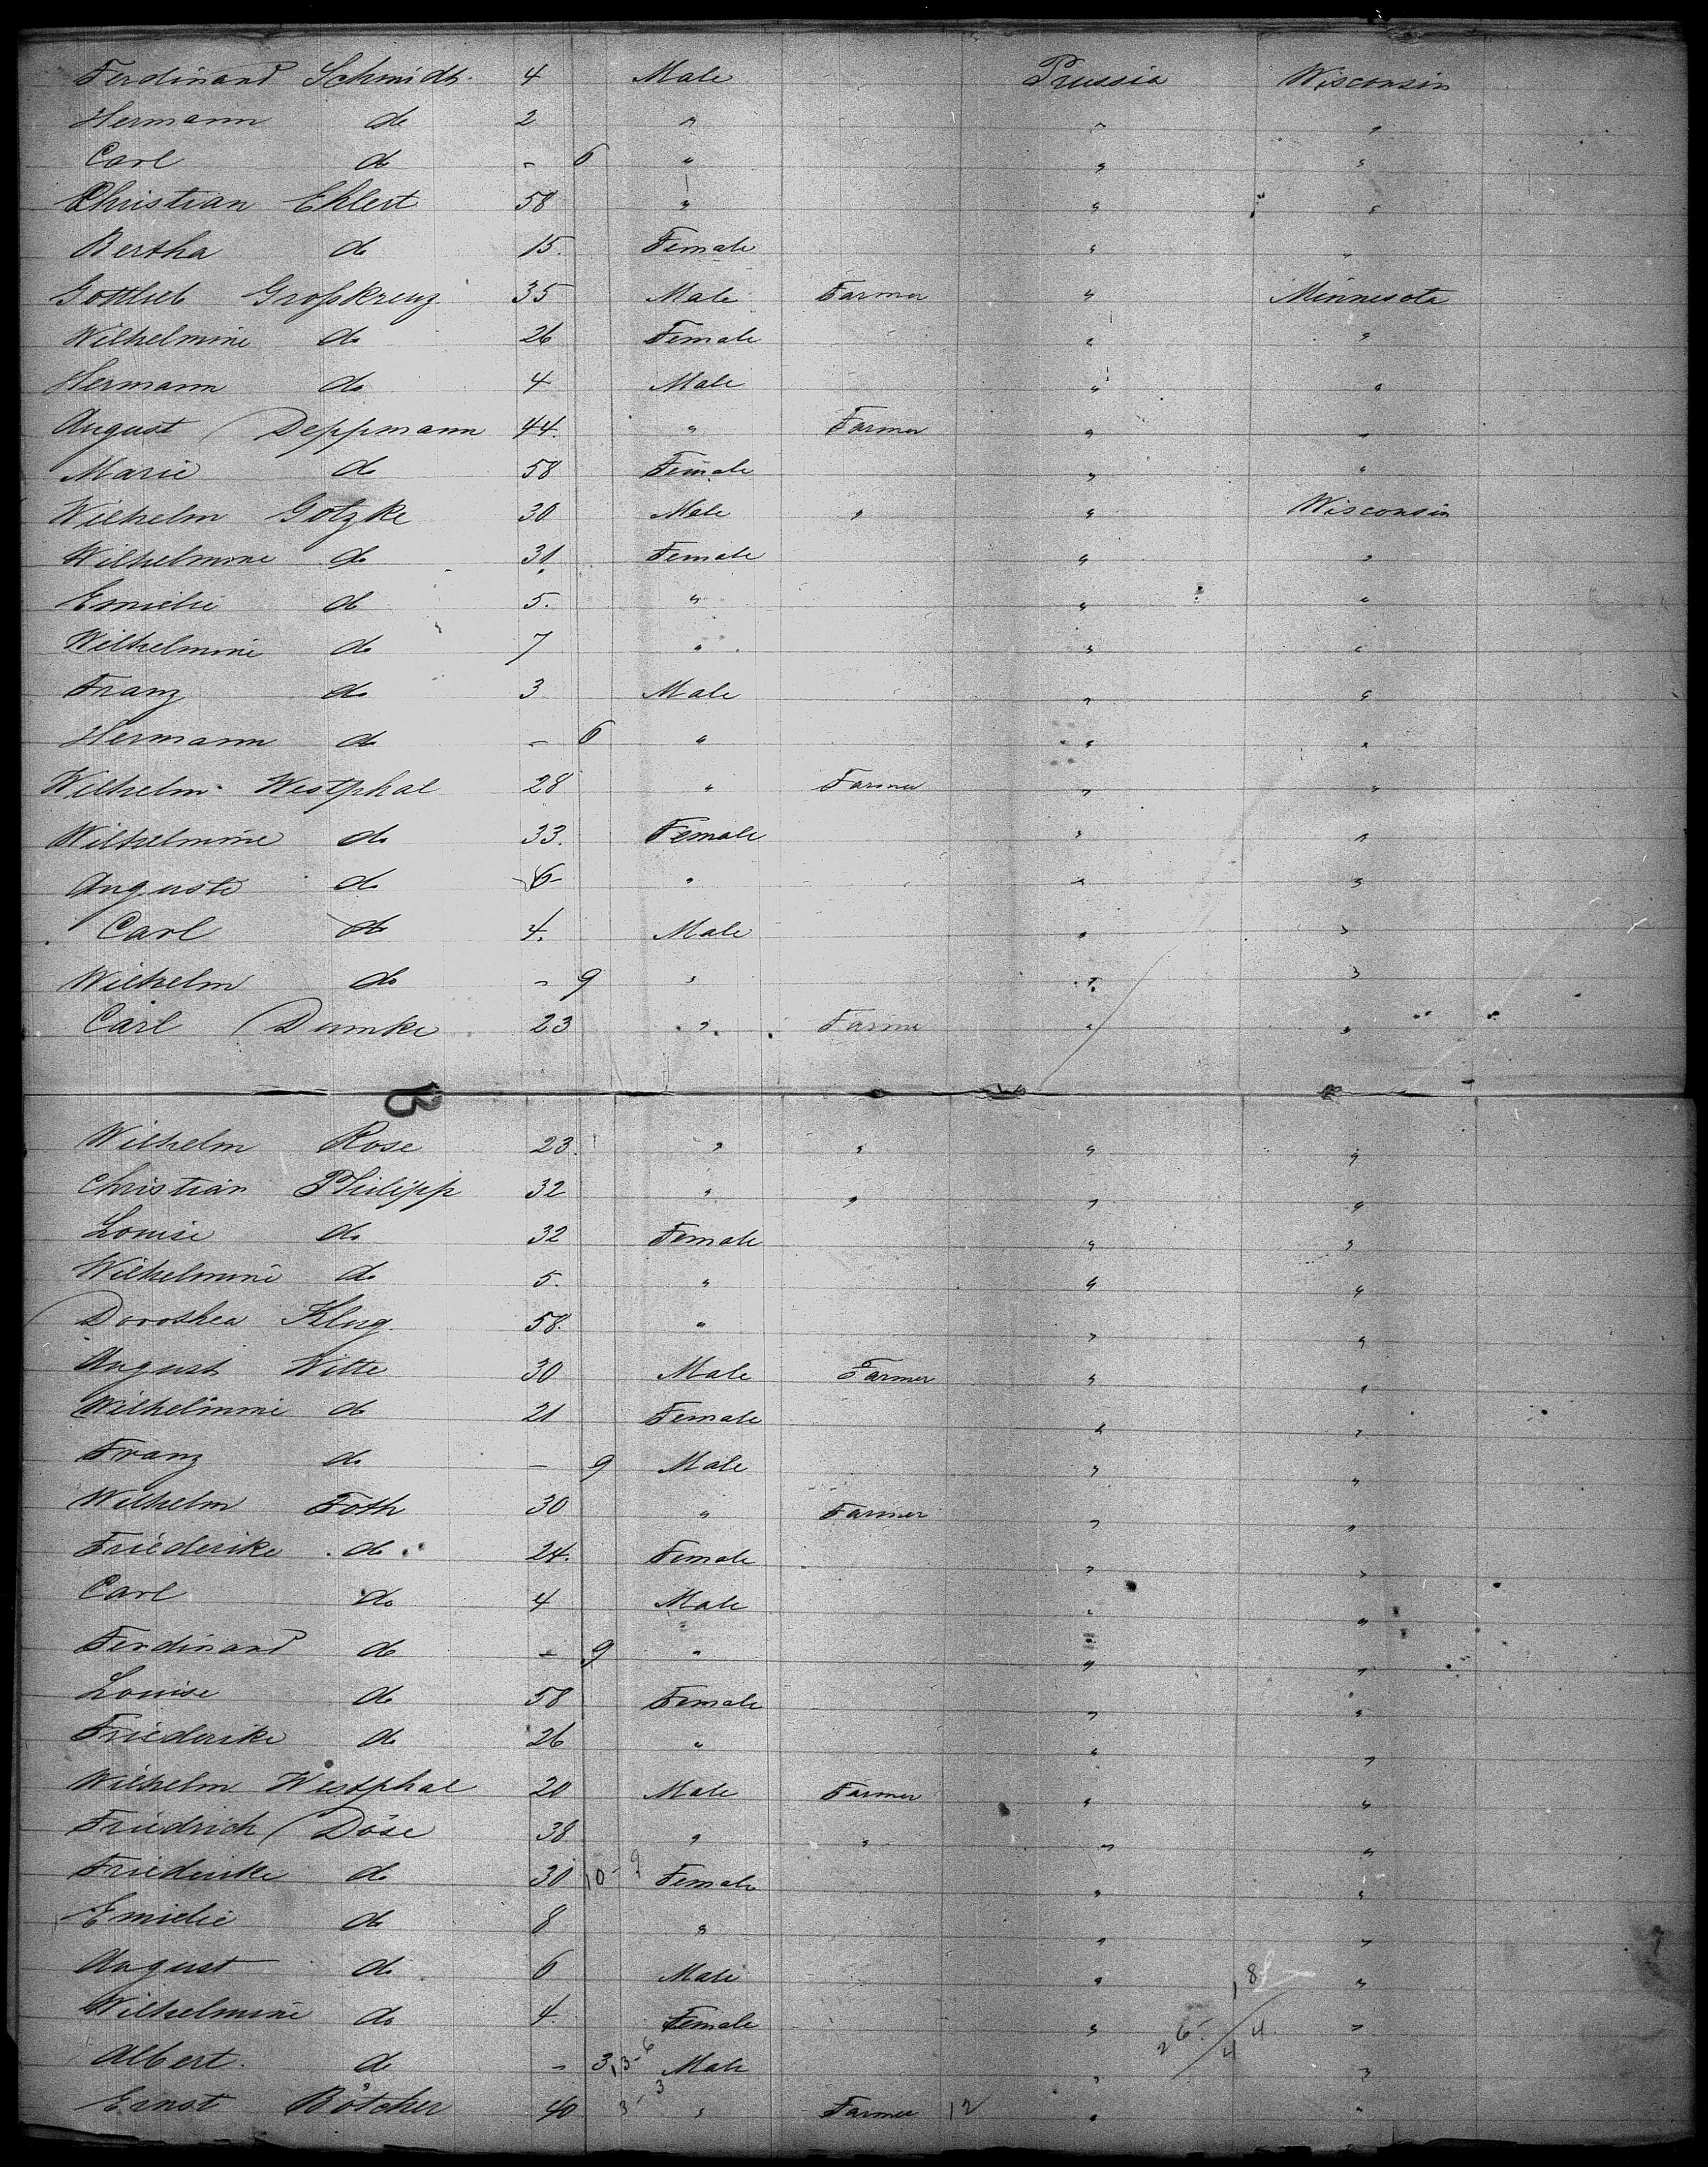 Ferdinand Schmidt 4 Male Prussia Wisconsin
Hermann do 2 " " "
Carl do - 6 " " "
Christian Ehlert 58 " " "
Bertha do 15. Female " "
Gottlieb Großkreuz 35 Male Farmer " Minnesota
Wilhelmine do 26 Female " "
Hermann do 4 Male " "
August Deppmann 44. " Farmer " "
Marie do 58 Female " "
Wilhelm Golzke 30 Male " " Wisconsin
Wilhelmine do 31 Female " "
Emilie do 5. " " "
Wilhelmine do 7 " " "
Franz do 3 Male " "
Hermann do - 6 " " "
Wilhelm Westphal 28 " Farmer " "
Wilhelmine do 33. Female " "
Auguste do 6 " " "
Carl do 4. Male " "
Wilhelm do - 9 " " "
Carl Dumke 23 " Farmer " "
Wilhelm Rose 23. " " " "
Christian Philipp 32 " " " "
Louise do 32 Female " "
Wilhelmine do 5. " " "
Dorothea Klug 58. " " "
August Witte 30 Male Farmer " "
Wilhelmine do 21 Female " "
Franz do - 9 Male " "
Wilhelm Foth 30 " Farmer " "
Friederike do 24. Female " "
Carl do 4 Male " "
Ferdinand do - 9 " " "
Louise do 58 Female " "
Friederike do 26 " " "
Wilhelm Westphal 20 Male Farmer " "
Friedrich Döse 38 " " " "
Friederike do 30 10-9 Female " "
Emilie do 8 " " "
August do 6 Male " "
Wilhelmine do 4. Female " "
Albert do - 3 3-6 Male " "
Ernst Bötcher 40 3-3 " Farmer 12 " "